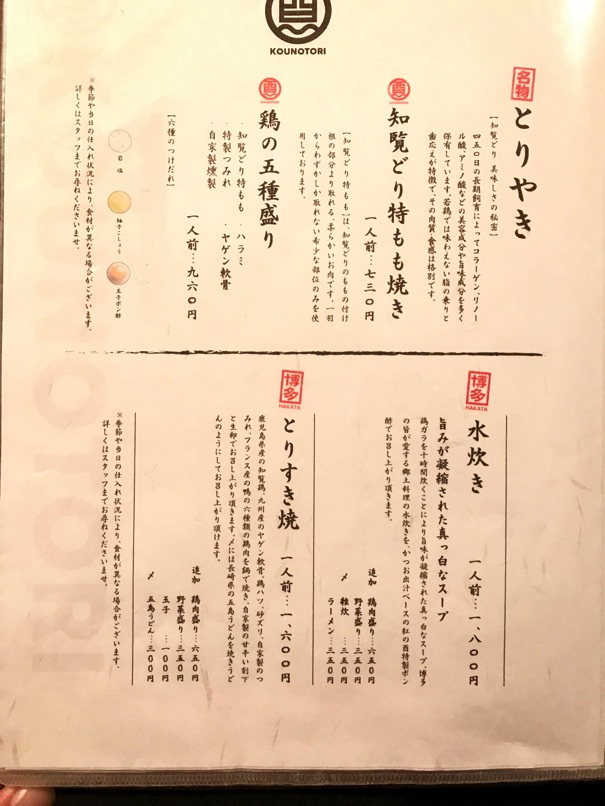 KOUNOTORI
名物
とりやき
【知覧どり 美味しさの秘密】
四五〇日の長期飼育によってコラーゲン、リノー
ル酸、アミノ酸などの美容成分や旨味成分を多く
保有しています。若鶏では味わえない脂の乗りと
歯応えが特徴で、その肉質、食感は格別です。
知覧どり特もも焼き
一人前…七三〇円
【知覧どり特もも】は、知覧どりのももの付け
根の部分より取れる、柔らかいお肉です。一羽
からわずかしか取れない希少な部位のみを使
用しております。
鶏の五種盛り
・知覧どり特もも ・ハラミ
・特製つみれ ・ヤゲン軟骨
・自家製燻製
一人前…九六〇円
【六種のつけだれ】
岩塩
柚子こしょう
玉子ポン酢
※季節や当日の仕入れ状況により、食材が異なる場合がございます。
詳しくはスタッフまでお尋ねくださいませ。
博多
HAKATA
水炊き
一人前…一、八〇〇円
旨みが凝縮された真っ白なスープ
鶏ガラを十時間炊くことにより旨味が凝縮された真っ白なスープ。博多
の皆が愛する郷土料理の水炊きを、かつお出汁ベースの紅の酉特製ポン
酢でお召し上がり頂きます。
追加 鶏肉盛り…六五〇円
野菜盛り…三五〇円
〆 雑炊…三五〇円
ラーメン…三五〇円
博多
HAKATA
とりすき焼
一人前…一、六〇〇円
鹿児島県産の知覧鶏、九州産のヤゲン軟骨、鶏ハツ、砂ズリ、自家製のつ
みれ、フランス産の鴨の六種類の鶏肉を鍋で焼き、自家製の甘辛い割下
と生卵でお召し上がり頂きます。〆には長崎県の五島うどんを焼きうど
んのようにしてお召し上がり頂けます。
追加 鶏肉盛り…六五〇円
野菜盛り…三五〇円
玉子…一〇〇円
〆 五島うどん…三〇〇円
※季節や当日の仕入れ状況により、食材が異なる場合がございます。
詳しくはスタッフまでお尋ねくださいませ。